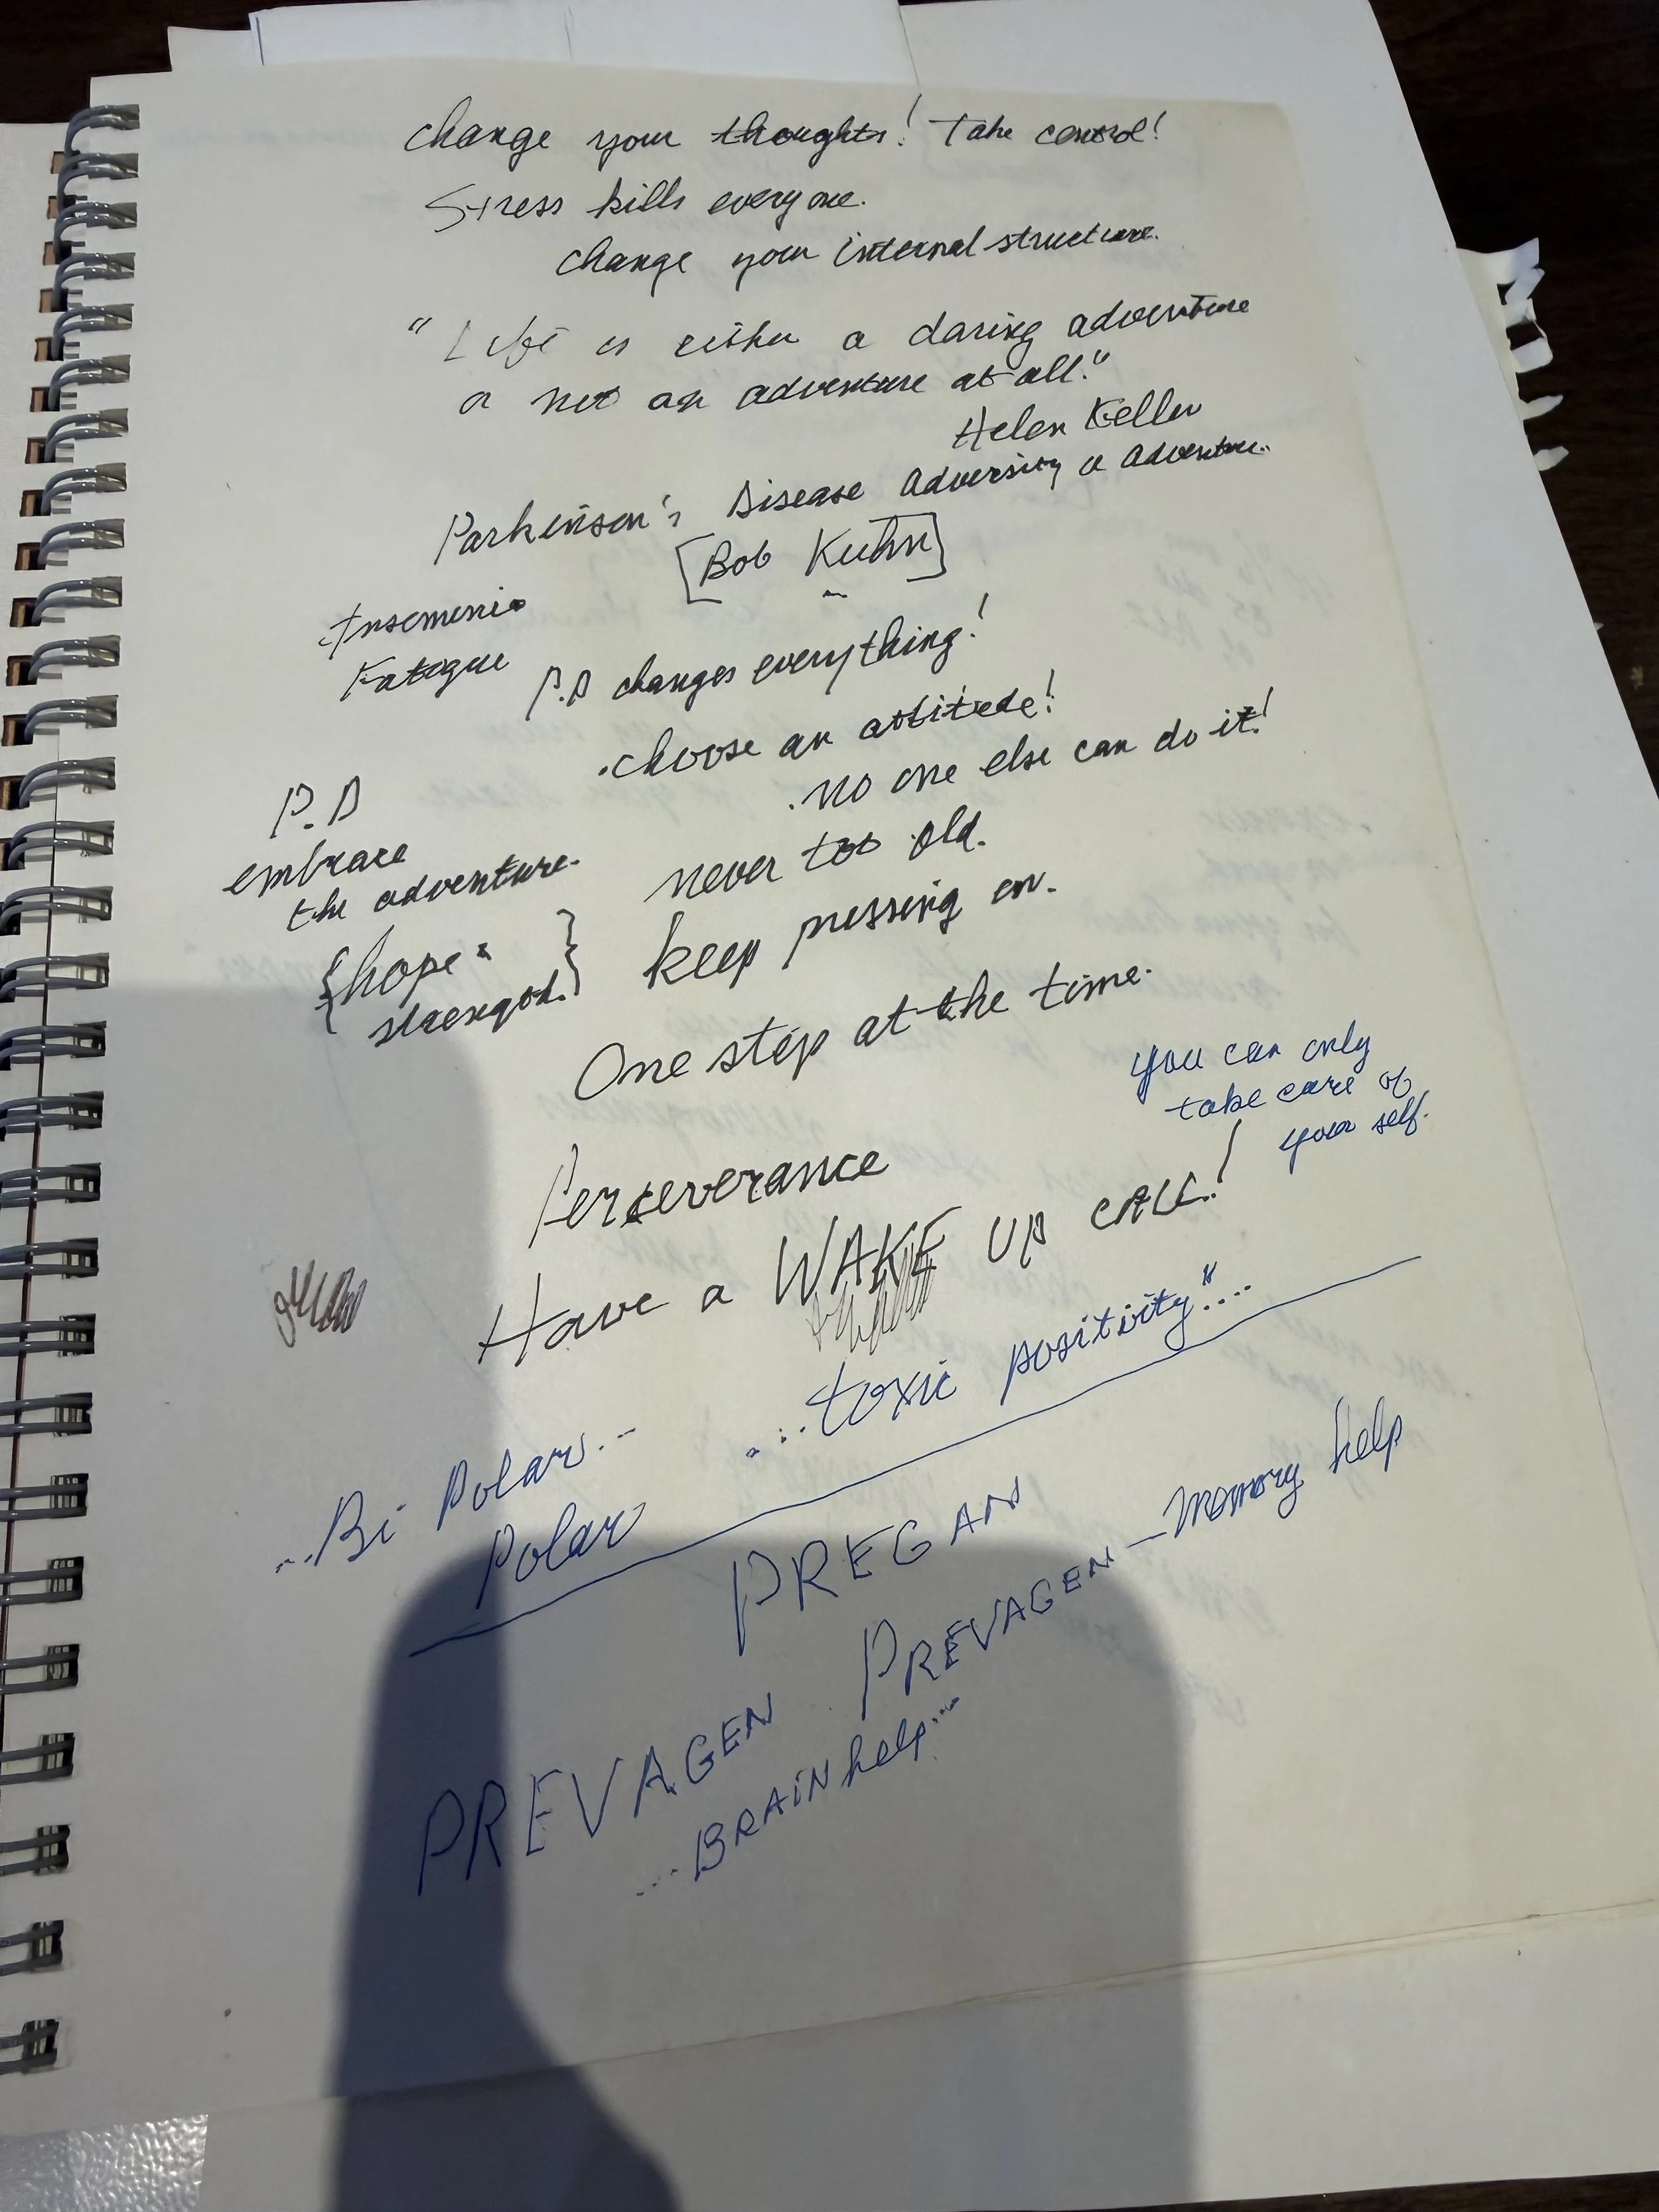 change your thoughts! Take control!
Stress kills everyone.
change your internal structure.
"Life is either a daring adventure
or not an adventure at all."
Helen Keller
Parkinson's Disease Adversity or Adventure..
[Bob Kuhn]
Insomenia
Fatogue
P.D changes everything!
.choose an attitude!
.no one else can do it!
P.D
embrace
the adventure.
never too old.
{hope =
strength.}
keep pressing on.
One step at the time.
you can only
take care of
your self.
Perseverance
Have a WAKE UP CALL!
...toxic positivity"....
...Bi Polar...
Polar
PREGAN
PREVAGEN - Memory help
PREVAGEN
...BRAIN help...